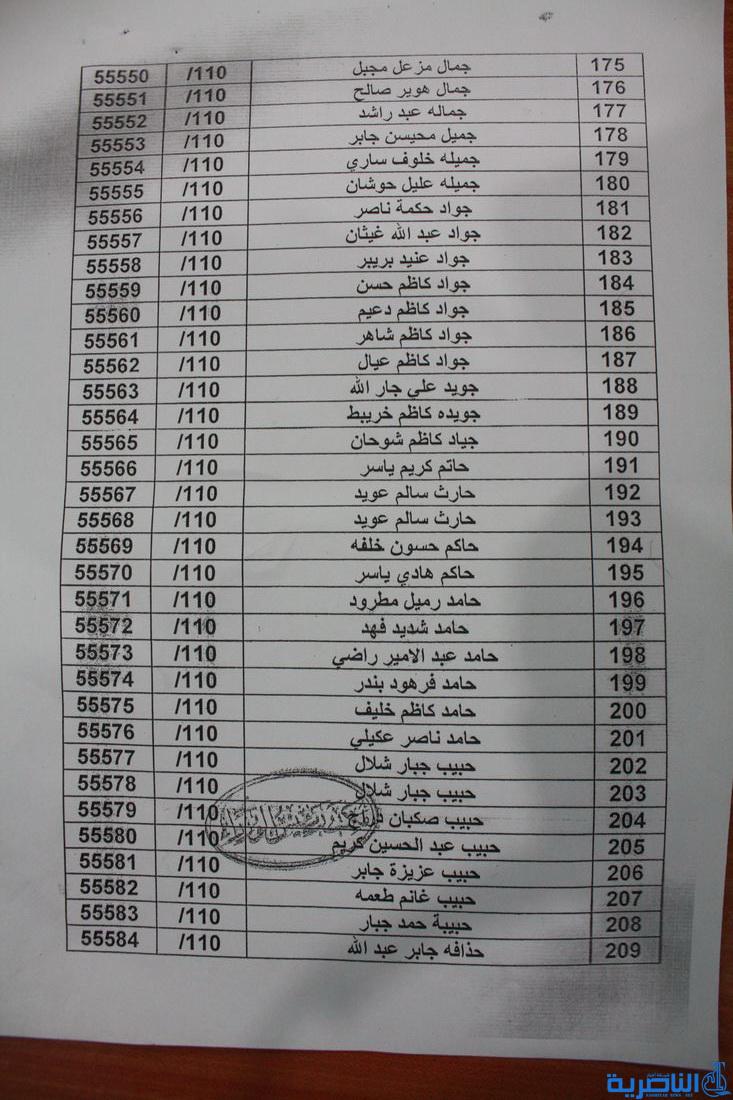 175 جمال مزعل مجبل 110/ 55550
176 جمال هوير صالح 110/ 55551
177 جماله عبد راشد 110/ 55552
178 جميل محيسن جابر 110/ 55553
179 جميله خلوف ساري 110/ 55554
180 جميله عليل حوشان 110/ 55555
181 جواد حكمة ناصر 110/ 55556
182 جواد عبد الله غيثان 110/ 55557
183 جواد عنيد بريبر 110/ 55558
184 جواد كاظم حسن 110/ 55559
185 جواد كاظم دعيم 110/ 55560
186 جواد كاظم شاهر 110/ 55561
187 جواد كاظم عيال 110/ 55562
188 جويد علي جار الله 110/ 55563
189 جويده كاظم خريبط 110/ 55564
190 جياد كاظم شوحان 110/ 55565
191 حاتم كريم ياسر 110/ 55566
192 حارث سالم عويد 110/ 55567
193 حارث سالم عويد 110/ 55568
194 حاكم حسون خلفه 110/ 55569
195 حاكم هادي ياسر 110/ 55570
196 حامد رميل مطرود 110/ 55571
197 حامد شديد فهد 110/ 55572
198 حامد عبد الامير راضي 110/ 55573
199 حامد فرهود بندر 110/ 55574
200 حامد كاظم خليف 110/ 55575
201 حامد ناصر عكيلي 110/ 55576
202 حبيب جبار شلال 110/ 55577
203 حبيب جبار شلال 110/ 55578
204 حبيب صكبان دراج 110/ 55579
205 حبيب عبد الحسين كريم 110/ 55580
206 حبيب عزيزة جابر 110/ 55581
207 حبيب غانم طعمه 110/ 55582
208 حبيبة حمد جبار 110/ 55583
209 حذافه جابر عبد الله 110/ 55584
الناصرية